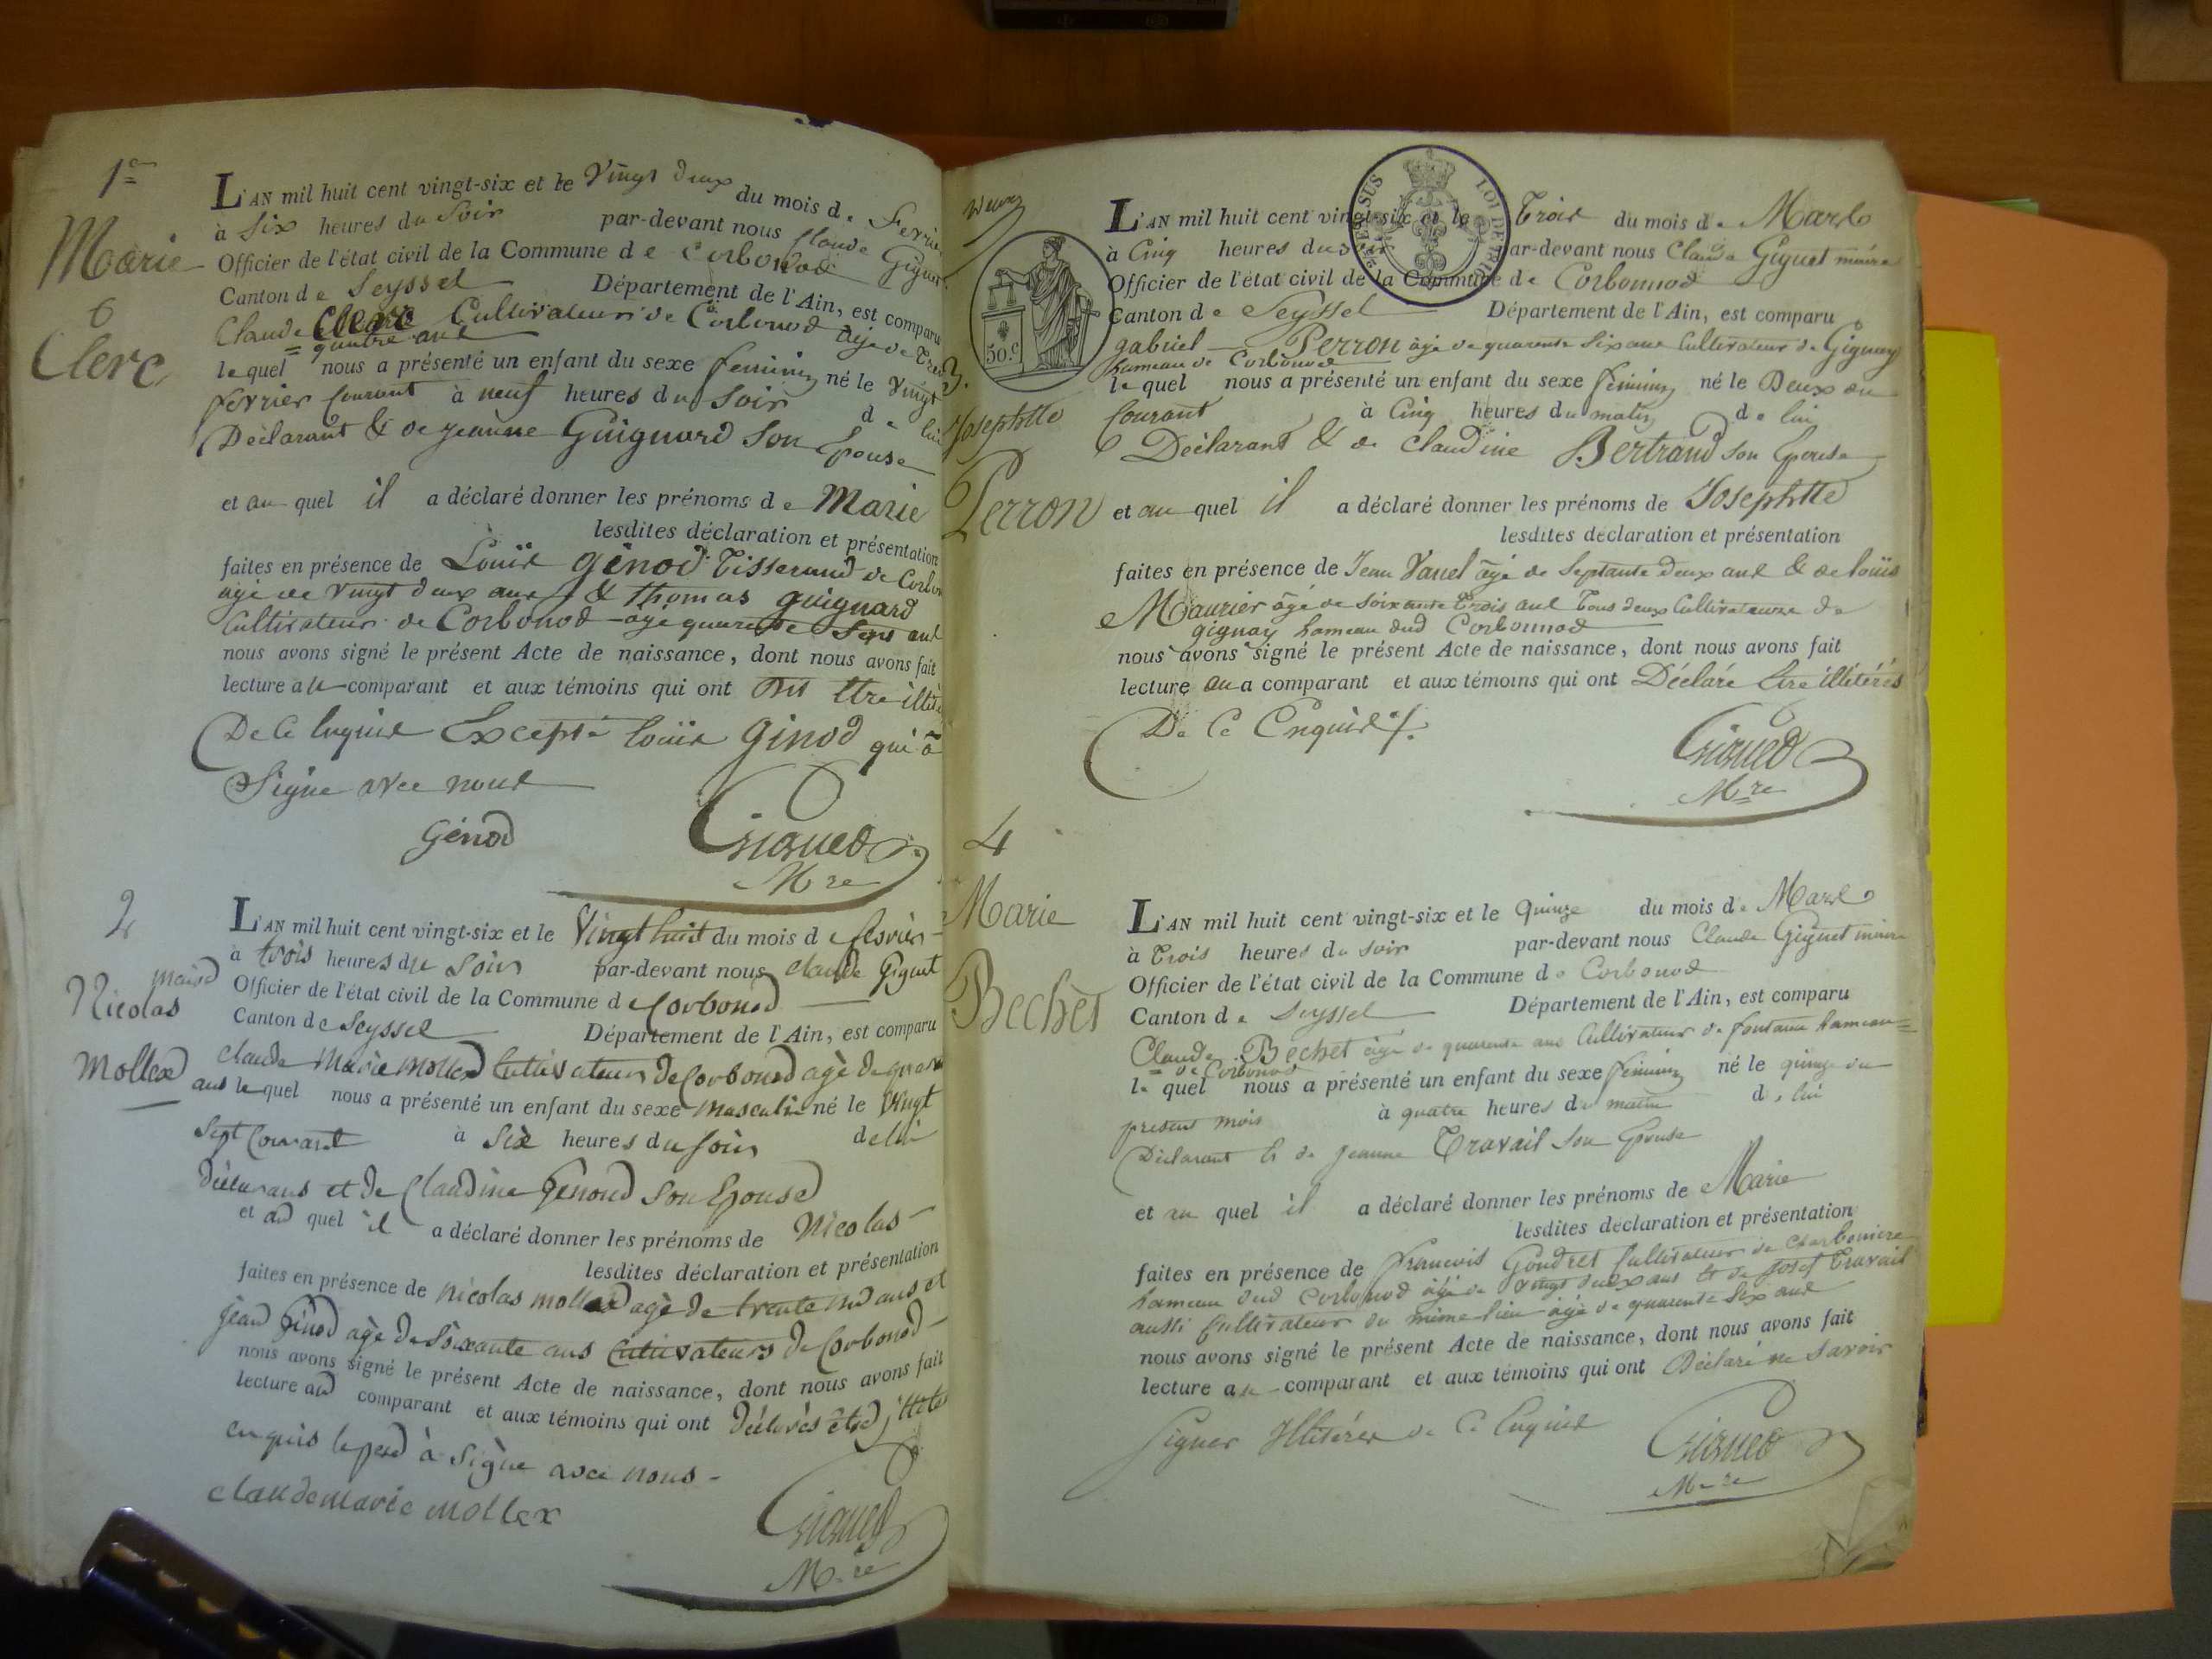 1re
Marie
Clerc
L'AN mil huit cent vingt-six et le Vingt deux du mois de Fevrier
à Six heures du Soir par-devant nous Claude Giguet
Officier de l'état civil de la Commune de Corbonod
Canton de Seyssel Département de l'Ain, est comparu
Claude Clerc Cultivateur de Corbonod âgé de trente
= quatre ans
le quel nous a présenté un enfant du sexe feminin né le Vingt
fevrier Courant à neuf heures du Soir de lui
Déclarant & de jeanne Guignard Son Epouse
et au quel il a déclaré donner les prénoms de Marie
lesdites déclaration et présentation
faites en présence de Louis génod Tisserand de Corbonod
âgé de Vingt deux ans & thomas guignard
Cultivateur de Corbonod âgé quarente Sept ans
nous avons signé le présent Acte de naissance, dont nous avons fait
lecture au comparant et aux témoins qui ont Dit Etre illit
De Ce Enquis Excepté louis Ginod qui à
Signé avec nous
Génod
Giguet
Mre
2
Nicolas
Mollex
L'AN mil huit cent vingt-six et le Vingt huit du mois de fesvrier
à trois heures du Soir par-devant nous Claude Giguet
maire
Officier de l'état civil de la Commune de Corbonod
Canton de Seyssel Département de l'Ain, est comparu
claude Marie Mollex Cultivateur de Corbonod agé de quarante
ans le quel nous a présenté un enfant du sexe masculin né le Vingt
Sept Courant à Six heures du soir de lui
déclarans et de Claudine Genoud Son Epouse
et au quel il a déclaré donner les prénoms de Nicolas
lesdites déclaration et présentation
faites en présence de Nicolas mollex agé de trente ans et
jean Ginod agé de Soixante ans Cultivateurs de Corbonod
nous avons signé le présent Acte de naissance, dont nous avons fait
lecture au comparant et aux témoins qui ont déclarés être
enquis le pere à Signe avec nous
claude marie mollex
Giguet
Mre
50.c
LOI DE
3.
Josephtte
Perron
L'AN mil huit cent vingt-six et le Trois du mois de Mars
à Cinq heures du soir par-devant nous Claude Giguet maire
Officier de l'état civil de la Commune de Corbonnod
Canton de Seyssel Département de l'Ain, est comparu
gabriel Perron âgé de quarente Six ans Cultivateur de Gignay
hameau de Corbonod
le quel nous a présenté un enfant du sexe feminin né le Deux du
Courant à Cinq heures du matin de lui
Déclarant & de Claudine Bertrand son Epouse
et au quel il a déclaré donner les prénoms de Josephtte
lesdites déclaration et présentation
faites en présence de Jean Vanel âgé de Septante Deux ans & de louis
Maurier âgé de Soixante Trois ans Tous deux Cultivateurs de
gignay hameau dud Corbonnod
nous avons signé le présent Acte de naissance, dont nous avons fait
lecture au comparant et aux témoins qui ont Déclaré Etre illitérés
De Ce Enquis
Giguet
Mre
4
Marie
Bechet
L'AN mil huit cent vingt-six et le quinze du mois de Mars
à Trois heures du soir par-devant nous Claude Giguet maire
Officier de l'état civil de la Commune de Corbonod
Canton de Seyssel Département de l'Ain, est comparu
Claude Bechet âgé de quarente ans Cultivateur de fontaine hameau
= de Corbonod
le quel nous a présenté un enfant du sexe feminin né le quinze du
present mois à quatre heures du matin de lui
Déclarant & de jeanne Travail Son Epouse
et au quel il a déclaré donner les prénoms de Marie
lesdites déclaration et présentation
faites en présence de francois Gondret Cultivateur de Charboniere
hameau dud Corbonod âgé de vingt deux ans & de Josef Travail
aussi Cultivateur du même lieu âgé de quarente Six ans
nous avons signé le présent Acte de naissance, dont nous avons fait
lecture au comparant et aux témoins qui ont Déclaré ne Savoir
Signer Illitérés de Ce Enquis
Giguet
Mre